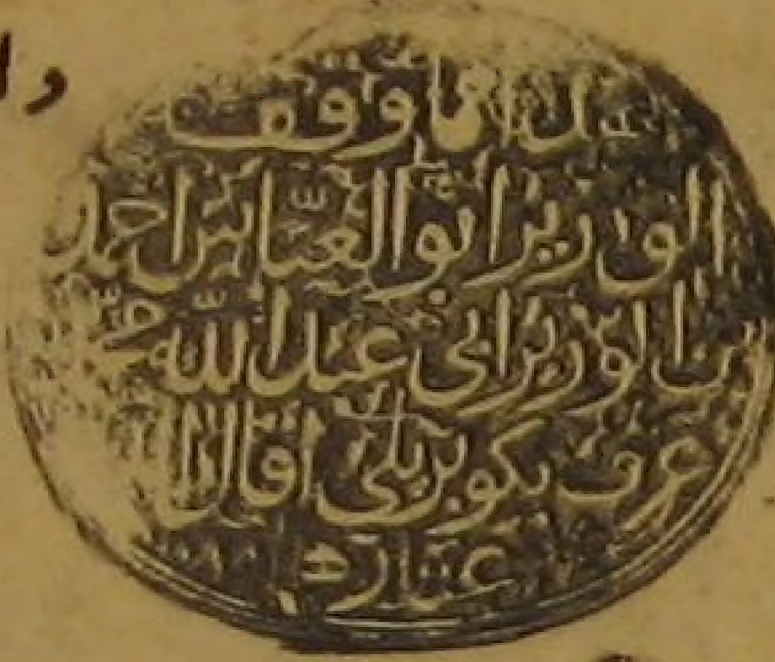 هذا ما وقف
الوزير ابو العباس احمد
بن الوزير ابي عبد الله محمد
عرف بكوبريلي اقال الله
عثارهما
وا